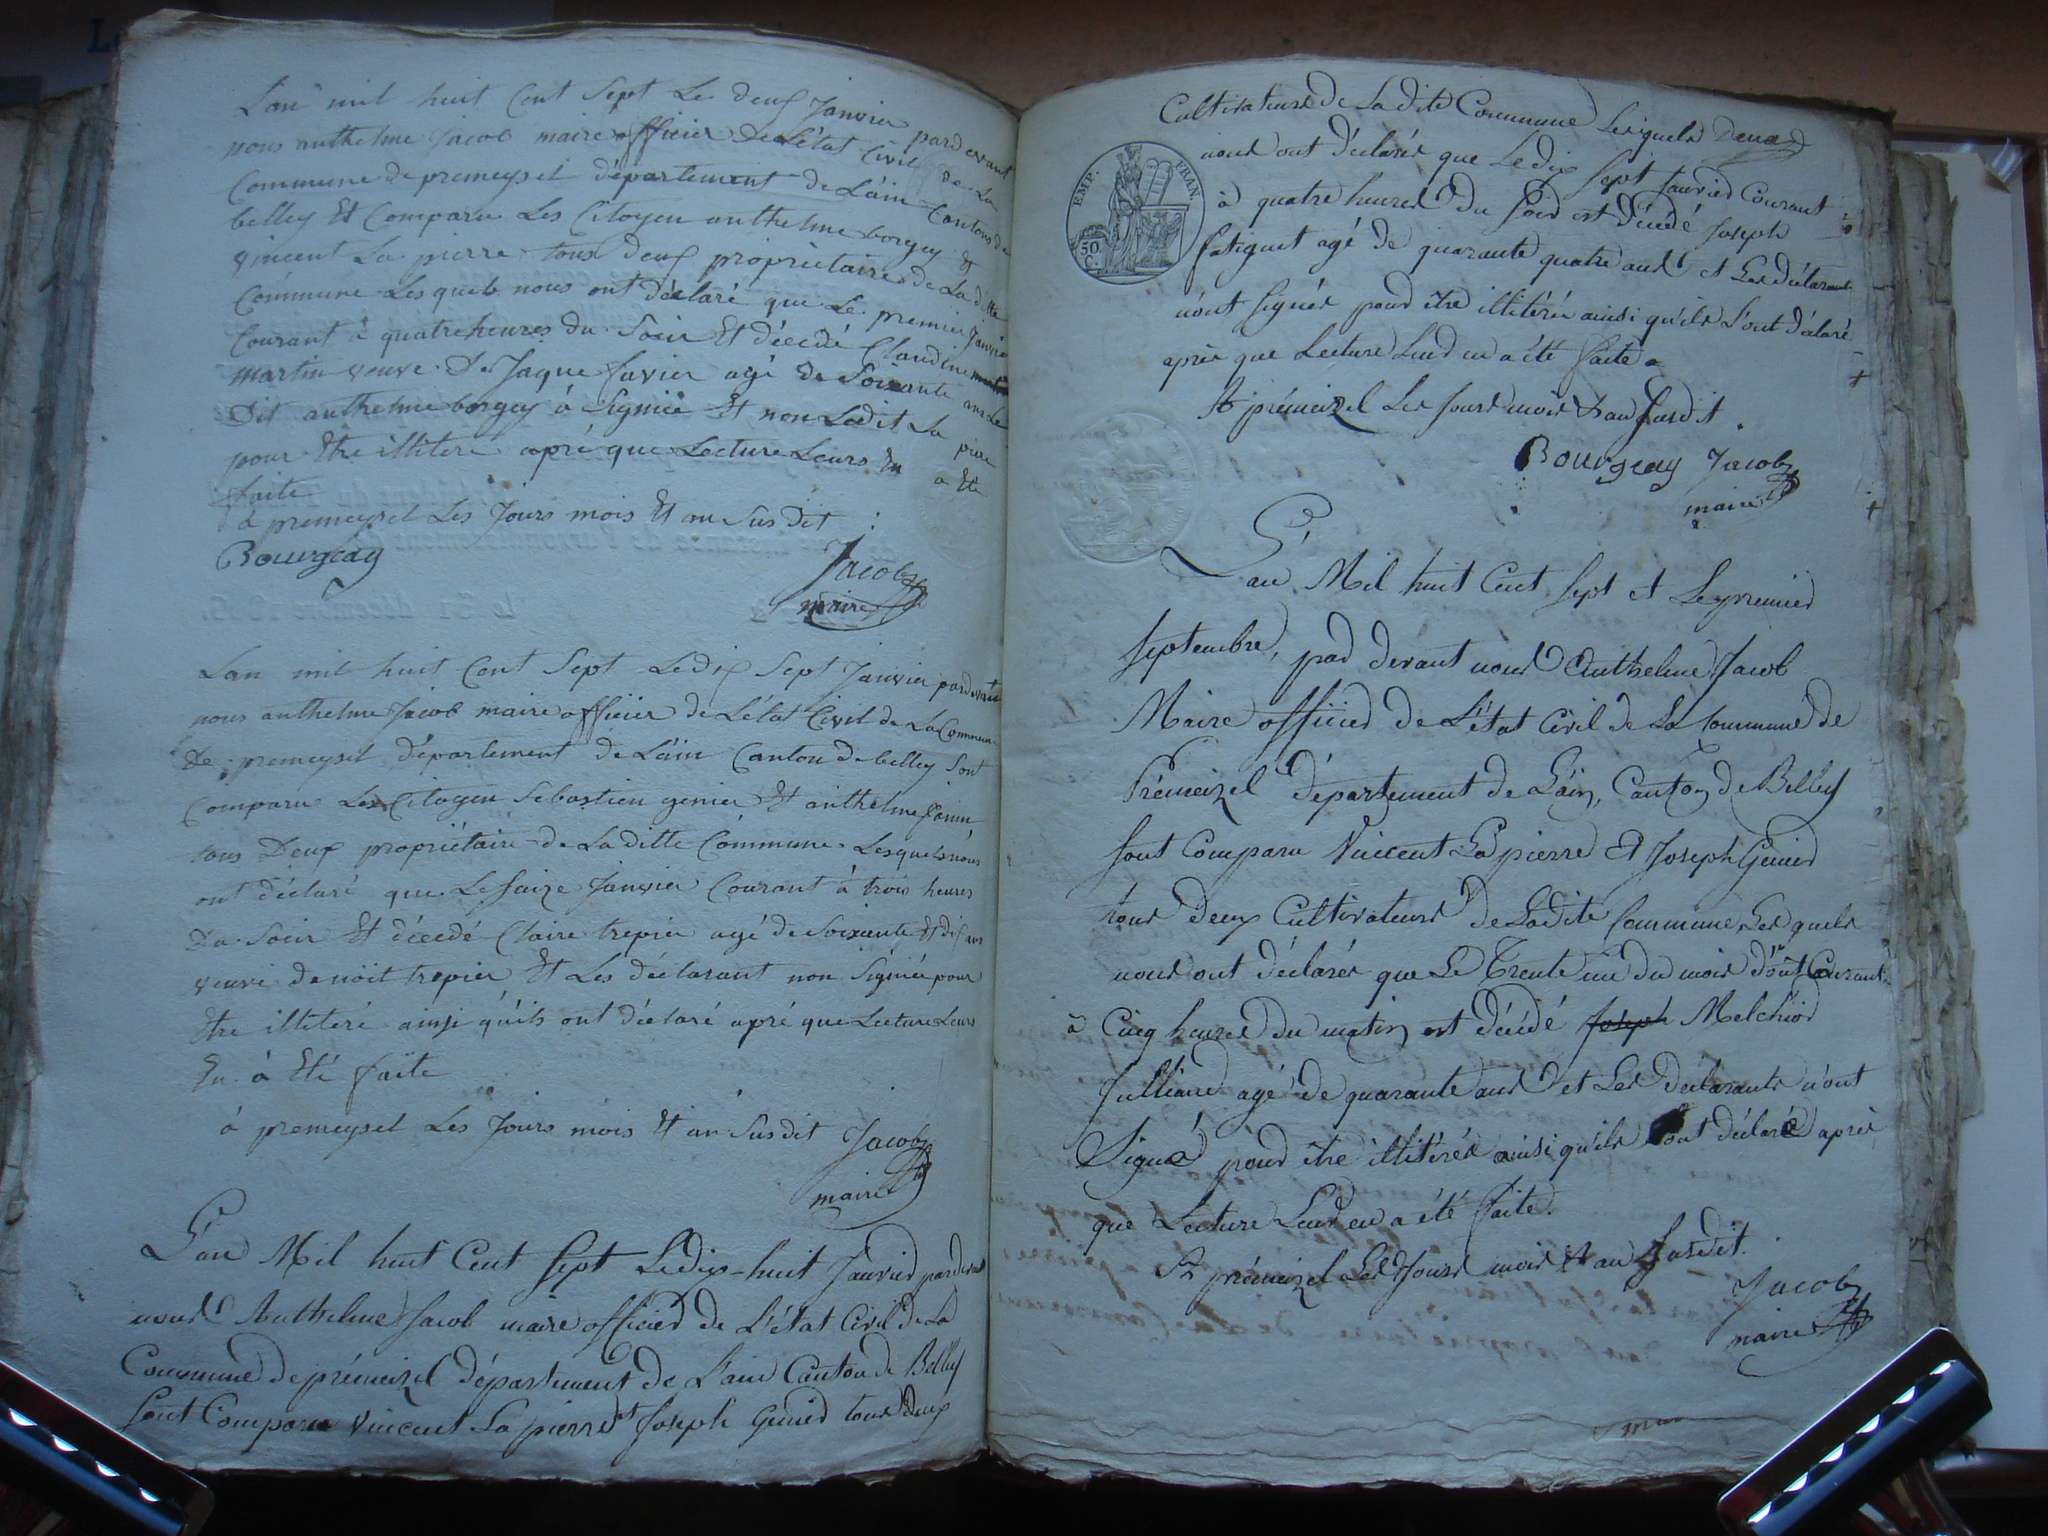 L'an mil huit Cent Sept Le deux Janvier pardevant
nous anthelme Jacob maire officier De L'état Civil de La
Commune de premeysel département de L'ain Cantons de
belley Et Comparu Les Citoyen anthelme borgey &
vincent La pierre tous deux propriétaire de La ditte
Commune Lesquels nous ont déclaré que Le premier Janvier
Courant à quatre heures du Soir Et décédé Claudine
martin veuve De Jaque favier agé de Soixante ans Le
Dit anthelme borgey à Signée Et non Ledit La pirre
pour Etre illiteré apré que Lecture Leurs En a Eté
faite
à premeysel Les Jours mois Et an Sus Dit
Bourgeay Jacob
maire
L'an mil huit Cent Sept Le dix Sept Janvier pardevant
nous anthelme Jacob maire officier de L'état Civil de La Commune
De premeysel département de L'ain Canton de belley Sont
Comparu Les Citoyen Sebastien genier Et anthelme
tous Deux propriétaire de La ditte Commune Lesquels nous
ont déclaré que Le Saize Janvier Courant à trois heures
Du Soir Et décedé Claire trepier agé de Soixante Et dix ans
veuve denoit trepier Et Les déclarant non Signée pour
Etre illiteré ainsi qu'ils ont déclaré apré que Lecture Leurs
En à Eté faite
à premeysel Les Jours mois Et an Sus dit Jacob
maire
L'an Mil huit Cent Sept Le dix-huit Janvier pardevant
nous Anthelme Jacob maire officier de L'état Civil de La
Commune de prémeizel département de L'ain Canton de Belley
Sont Comparu Vincent La pierre et Joseph Genier tous deux
Cultivateurs de La dite Commune Lesquels
nous ont déclarés que Le dix Sept Janvier Courant
à quatre heures du Soir est décédé Joseph
fatiguet agé de quarante quatre ans et Les déclarants
n'ont Signés pour être illitérés ainsi qu'ils L'ont déclaré
après que Lecture Leur en a été faite
A prémeizel Les Jours mois & an Susdit
Bourgeay Jacob
maire
EMP. FRAN.
50
C.
L'an Mil huit Cent Sept et Le premier
Septembre, par devant nous Anthelme Jacob
Maire officier de L'état Civil de La Commune de
Prémeizel département de L'ain, Canton de Belley
Sont Comparu Vincent La pierre Et Joseph Genier
tous deux Cultivateurs de Ladite Commune, Lesquels
nous ont déclarés que Le Trente un du mois d'oût Courant
à Cinq heures du matin est décédé Joseph Melchior
Julliand agé de quarante ans et Les déclarants n'ont
Signé pour être illitérés ainsi qu'ils L'ont déclaré après
que Lecture Leur en a été faite.
A prémeizel Les Jours mois & an Susdit.
Jacob
maire